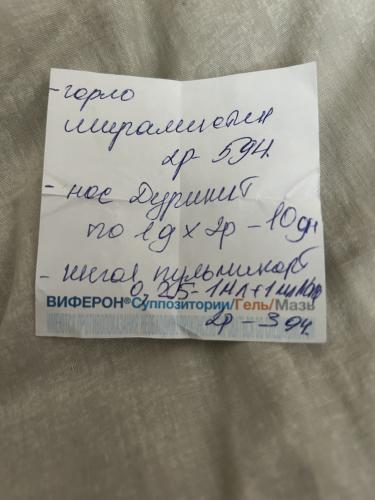 - горло
мирамистин
2р 5дн.
- нос Дуринит
по 1д х 2р - 10дн
- ингал. пульмикорт
0,25 - 1мл + 1мл
ВИФЕРОН® Суппозитории/Гель/Мазь
2р - 3дн.